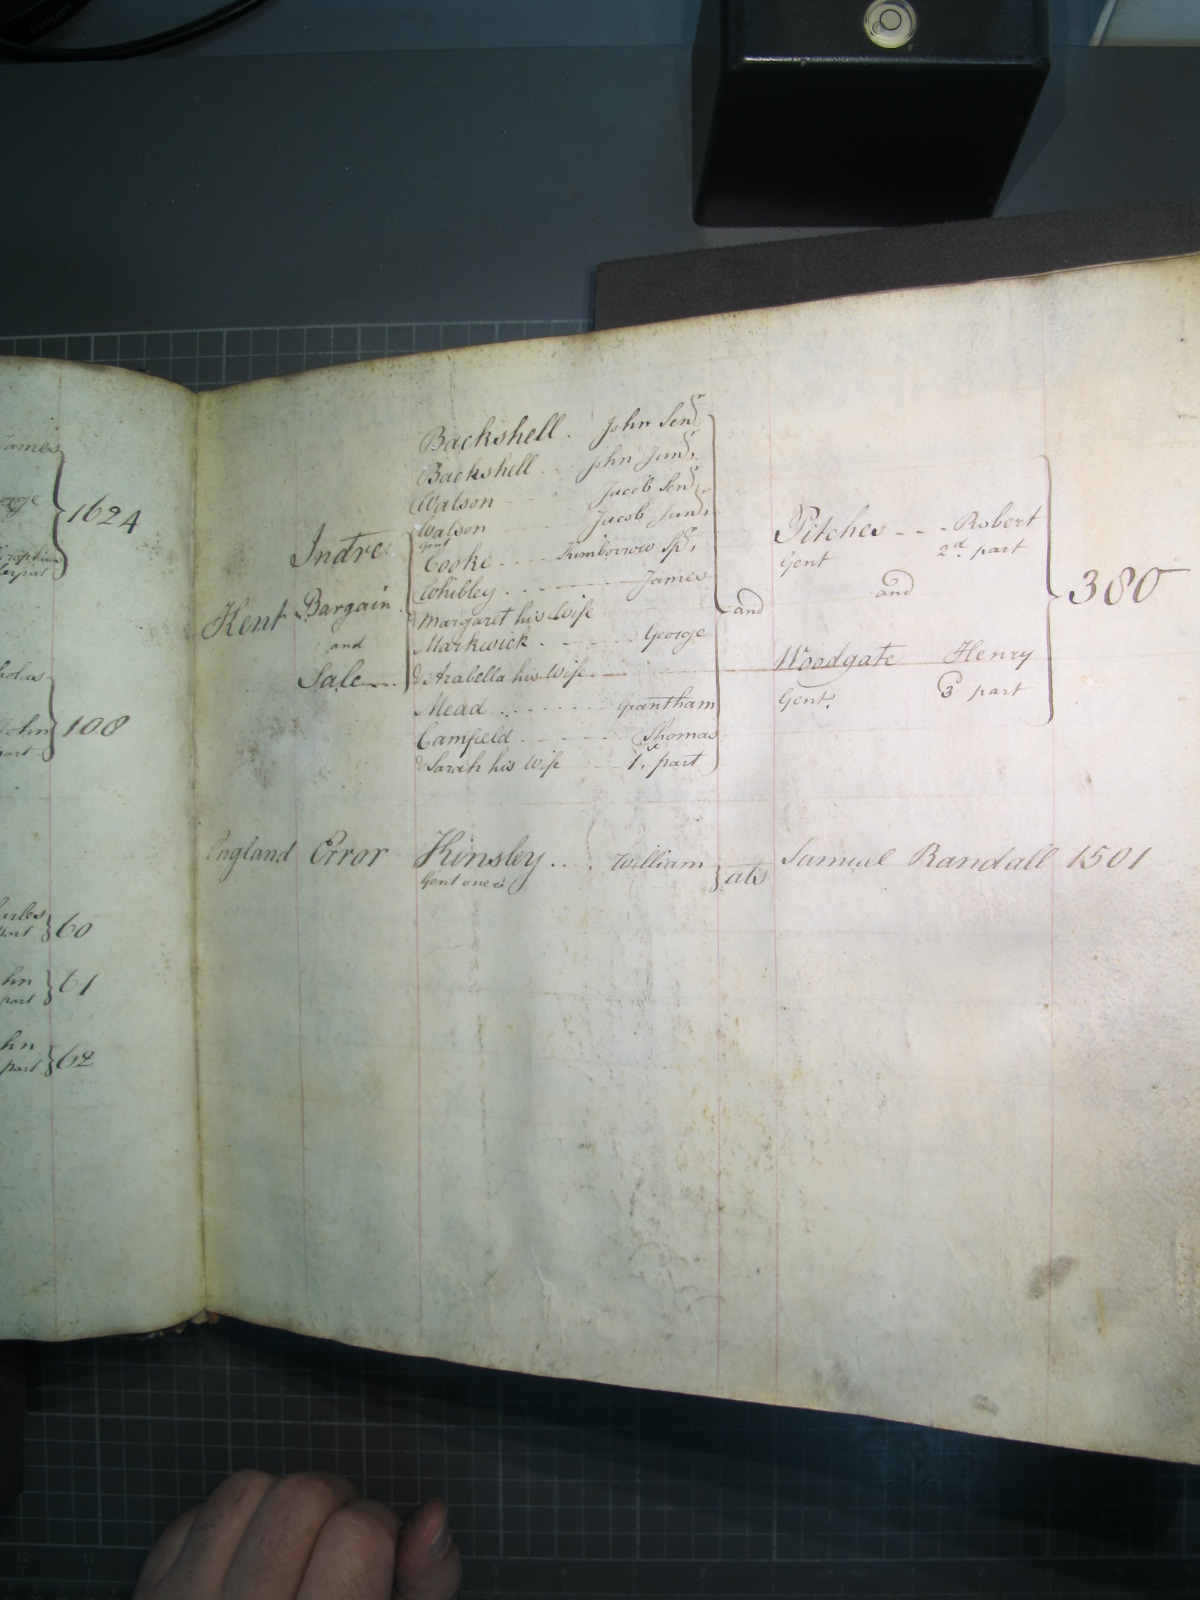 James
1624
part
John
108
part
60
part
hn
61
part
hn
62
part
Backshell . John Senr
Backshell John Junr
Watson Jacob Senr
Watson Jacob Junr
Gent
Indre Cooke Kimborrow Spr
Whibley James
Kent Bargain & Margaret his Wife and
and Markwick George
Sale & Arabella his Wife
Mead Grantham
Camfield Thomas
& Sarah his Wife 1st part
Pitches Robert
Gent 2d part
and
380
Woodgate Henry
Gent. 3 part
England Error Kinsley William ats Samuel Randall 1501
Gent one &c